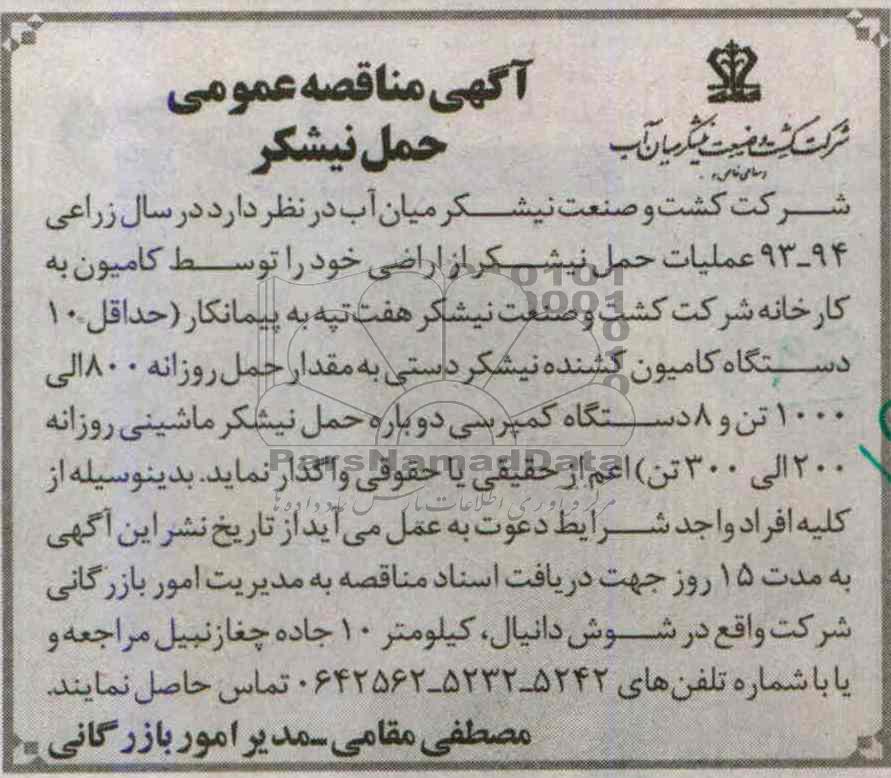 آگهی مناقصه عمومی
حمل نیشکر
شرکت کشت و صنعت نیشکر میان آب
«سهامی خاص»
شرکت کشت و صنعت نیشکر میان آب در نظر دارد در سال زراعی
۹۴ـ۹۳ عملیات حمل نیشکر از اراضی خود را توسط کامیون به
کارخانه شرکت کشت و صنعت نیشکر هفت تپه به پیمانکار (حداقل ۱۰
دستگاه کامیون کشنده نیشکر دستی به مقدار حمل روزانه ۸۰۰ الی
۱۰۰۰ تن و ۸ دستگاه کمپرسی دوباره حمل نیشکر ماشینی روزانه
۲۰۰ الی ۳۰۰ تن) اعم از حقیقی یا حقوقی واگذار نماید. بدینوسیله از
کلیه افراد واجد شرایط دعوت به عمل می آید از تاریخ نشر این آگهی
به مدت ۱۵ روز جهت دریافت اسناد مناقصه به مدیریت امور بازرگانی
شرکت واقع در شوش دانیال، کیلومتر ۱۰ جاده چغازنبیل مراجعه و
یا با شماره تلفن های ۵۲۴۲ـ۵۲۳۲ـ۰۶۴۲۵۶۲ تماس حاصل نمایند.
مصطفی مقامی ـ مدیر امور بازرگانی
ParsNamadData
مرکز فرآوری اطلاعات پارس نماد داده ها